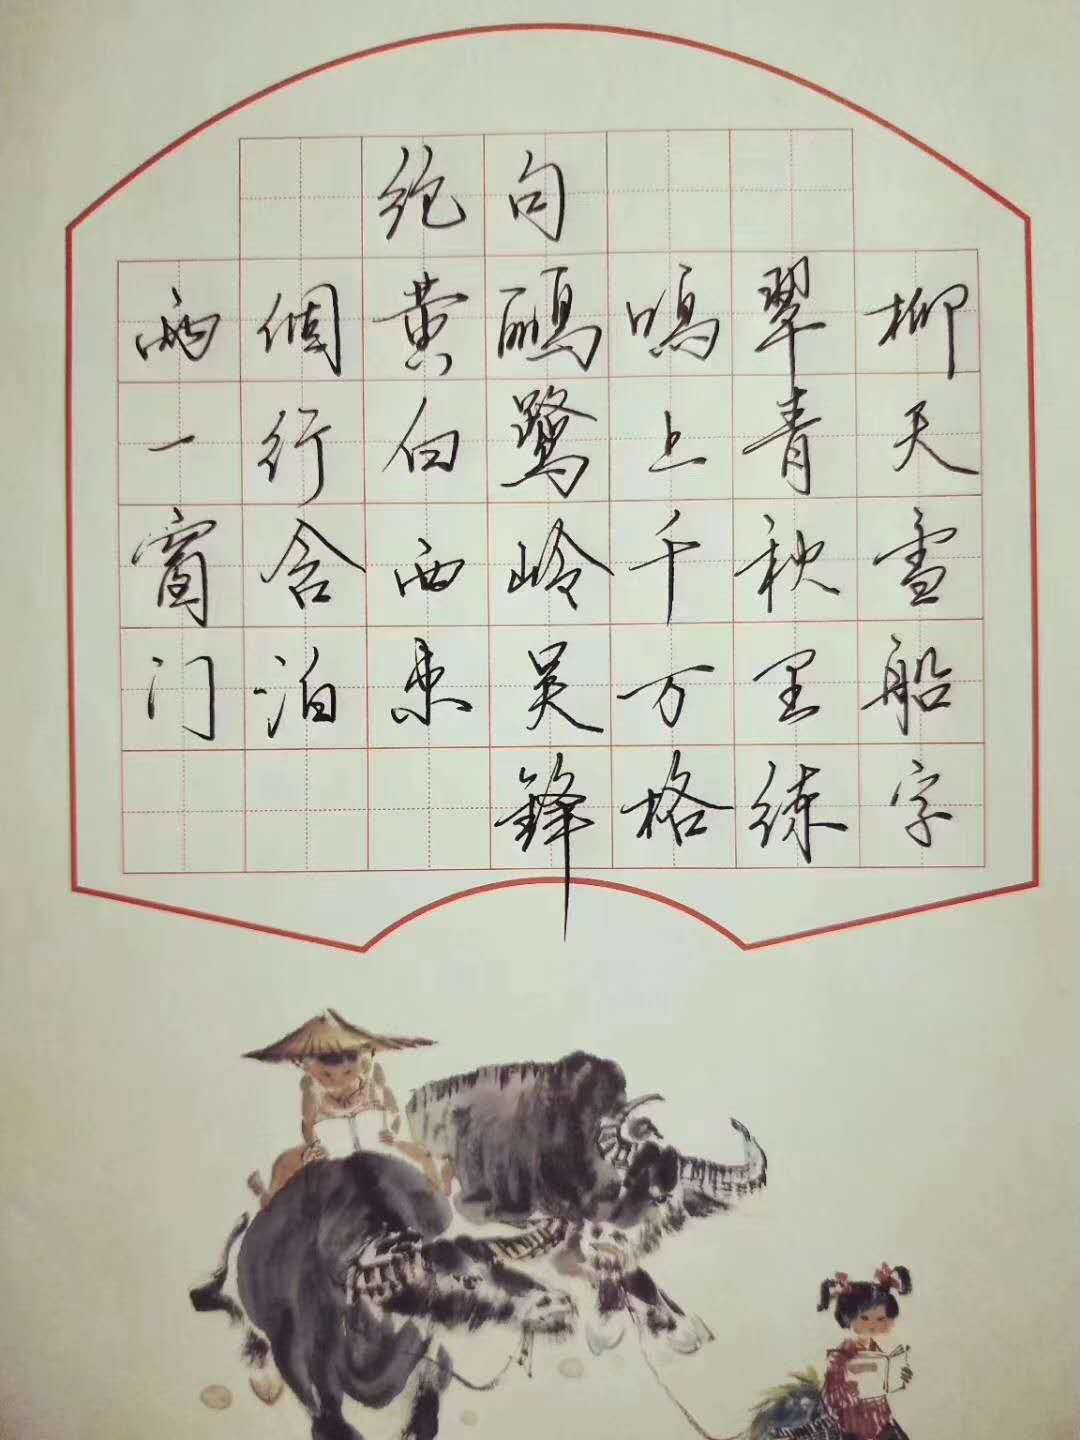 绝句
两個黄鹂鳴翠柳
一行白鹭上青天
窗含西岭千秋雪
门泊东吴万里船
鋒格练字